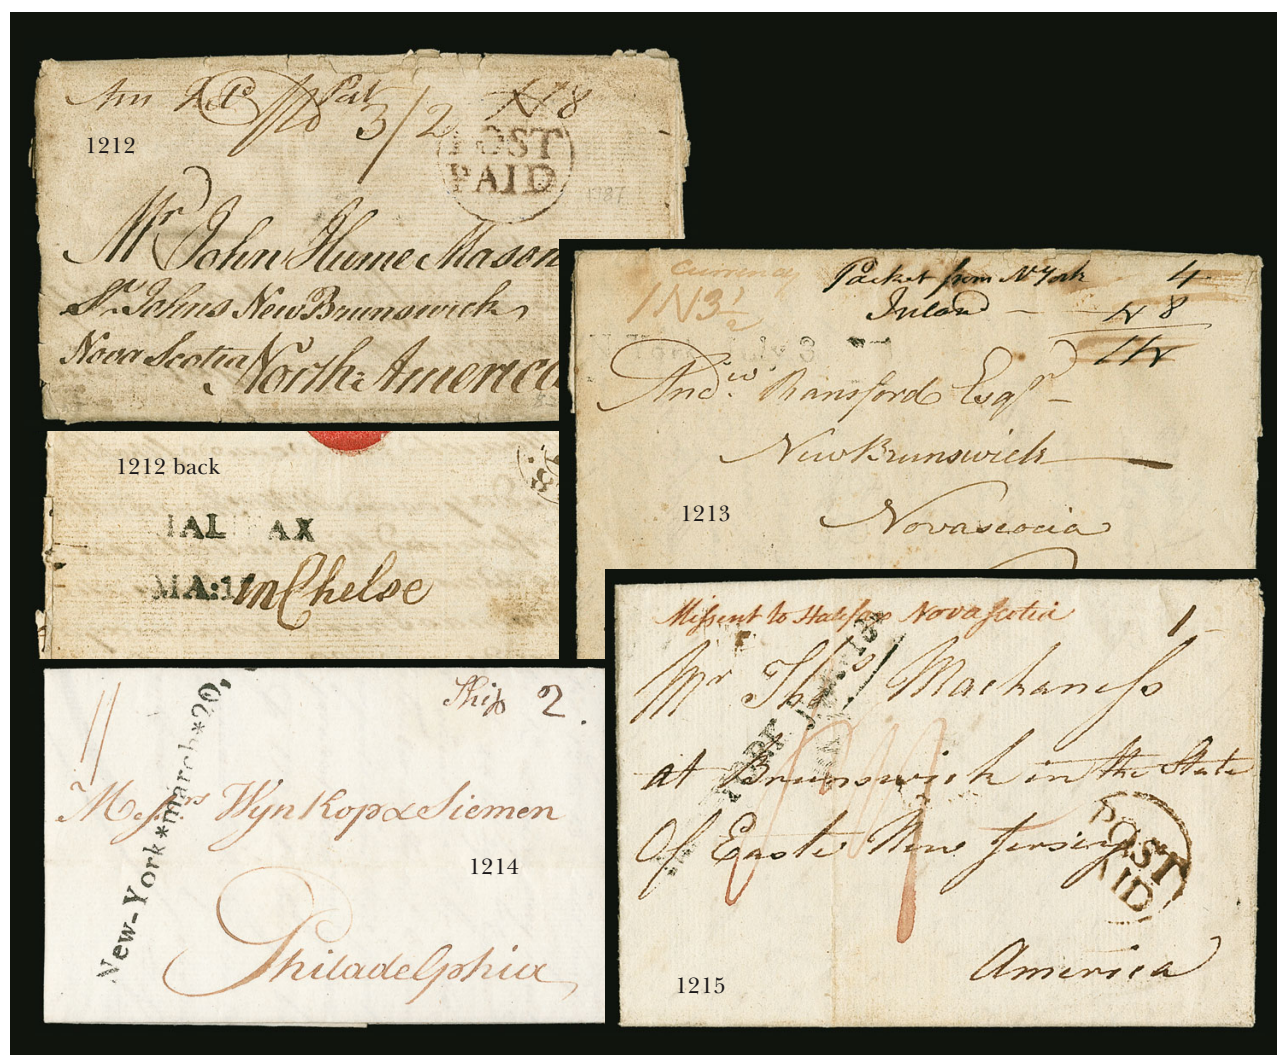 Pd 3/2 N 8
1212
POST
PAID
1787
Mr John Hume Mason
St. Johns New Brunswick,
Nova Scotia North America
1212 back
HAL AX
MA:
in Chelse
Currency
Packet from N York 4
Inland 8
York July 3
Andw. Ransford Esqr
New Brunswick
1213
Novascocia
Ship 2.
New-York*march*20,
Messrs Wynkop & Siemen
1214
Philadelphia
Missent to Halifax Nova Scotia 1
Mr Thos Machaness
at Brunswick in the State
Of East New Jersey
POST
PAID
America
1215